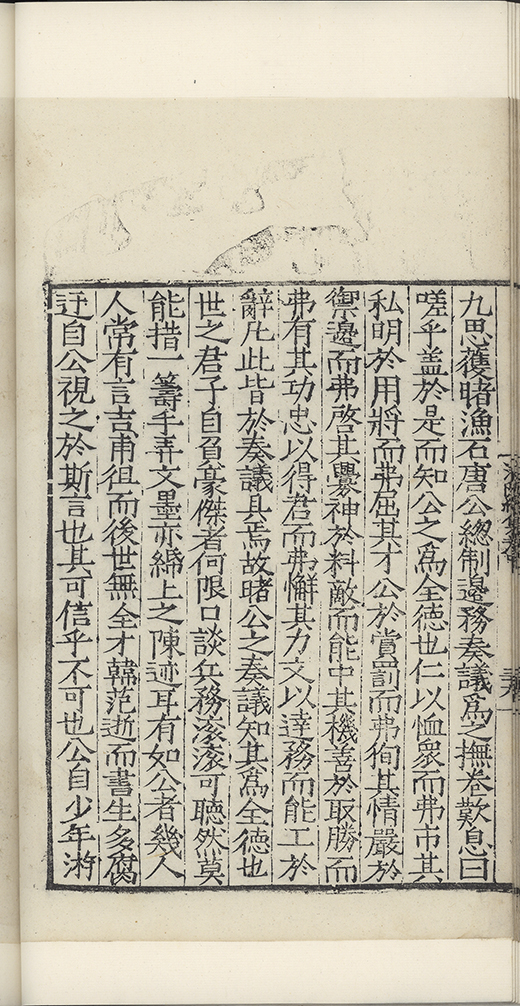 九思獲睹漁石唐公總制邊務奏議爲之撫卷歎息曰
嗟乎盖於是而知公之爲全徳也仁以恤衆而弗市其
私明於用將而弗屈其才公於賞罰而弗徇其情嚴於
禦邊而弗啓其釁神於料敵而能中其機善於取勝而
弗有其功忠以得君而弗懈其力文以達務而能工於
辭凡此皆於奏議具焉故睹公之奏議知其爲全徳也
世之君子自負豪傑者何限口談兵務滚滚可聴然莫
能措一籌手弄文墨亦紙上之陳迹耳有如公者幾人
人常有言吉甫徂而後世無全才韓范逝而書生多腐
迂自公視之於斯言也其可信乎不可也公自少年㳺